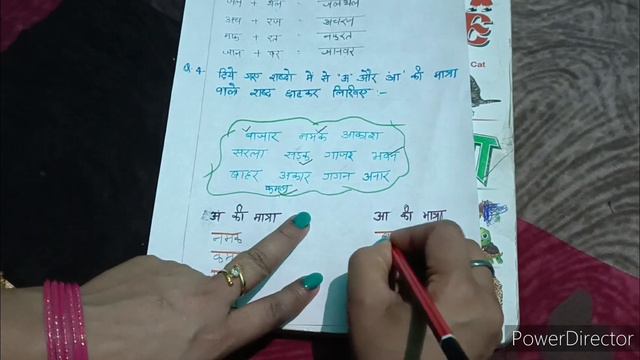 जल + थल = जलथल
अव + रन = अवरन
नफ + रत = नफरत
जान + वर = जानवर
Q.4. दिये गए शब्दो में से 'अ' और 'आ' की मात्रा
वाले शब्द छाटकर लिखिए :-
बाजार नमक आकाश
सरला सड़क गाजर भवन
बाहर अकार गगन अनार
कमल
अ की मात्रा आ की मात्रा
नमक
Cat
PowerDirector